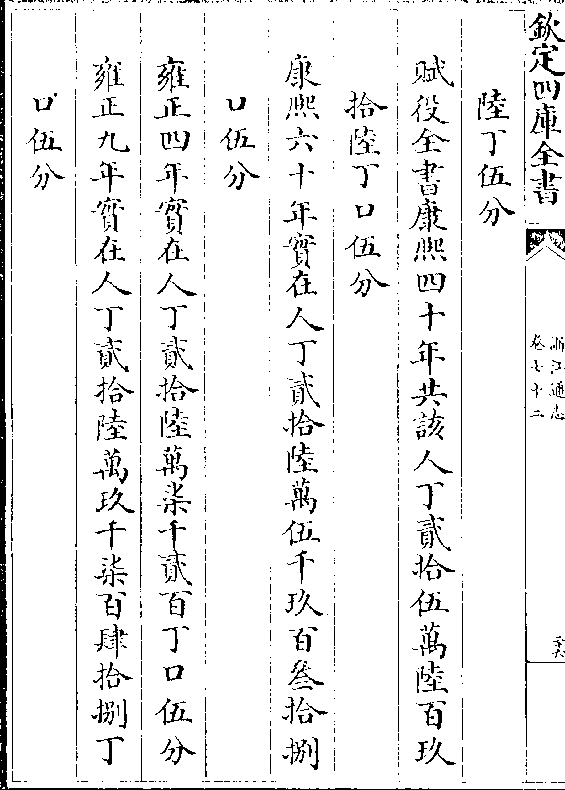 欽定四庫全書
浙江通志
卷七十二
陸丁伍分
賦役全書康熙四十年共該人丁貳拾伍萬陸百玖
拾陸丁口伍分
康熙六十年實在人丁貳拾陸萬伍千玖百叁拾捌
口伍分
雍正四年實在人丁貳拾陸萬柒千貳百丁口伍分
雍正九年實在人丁貳拾陸萬玖千柒百肆拾捌丁
口伍分